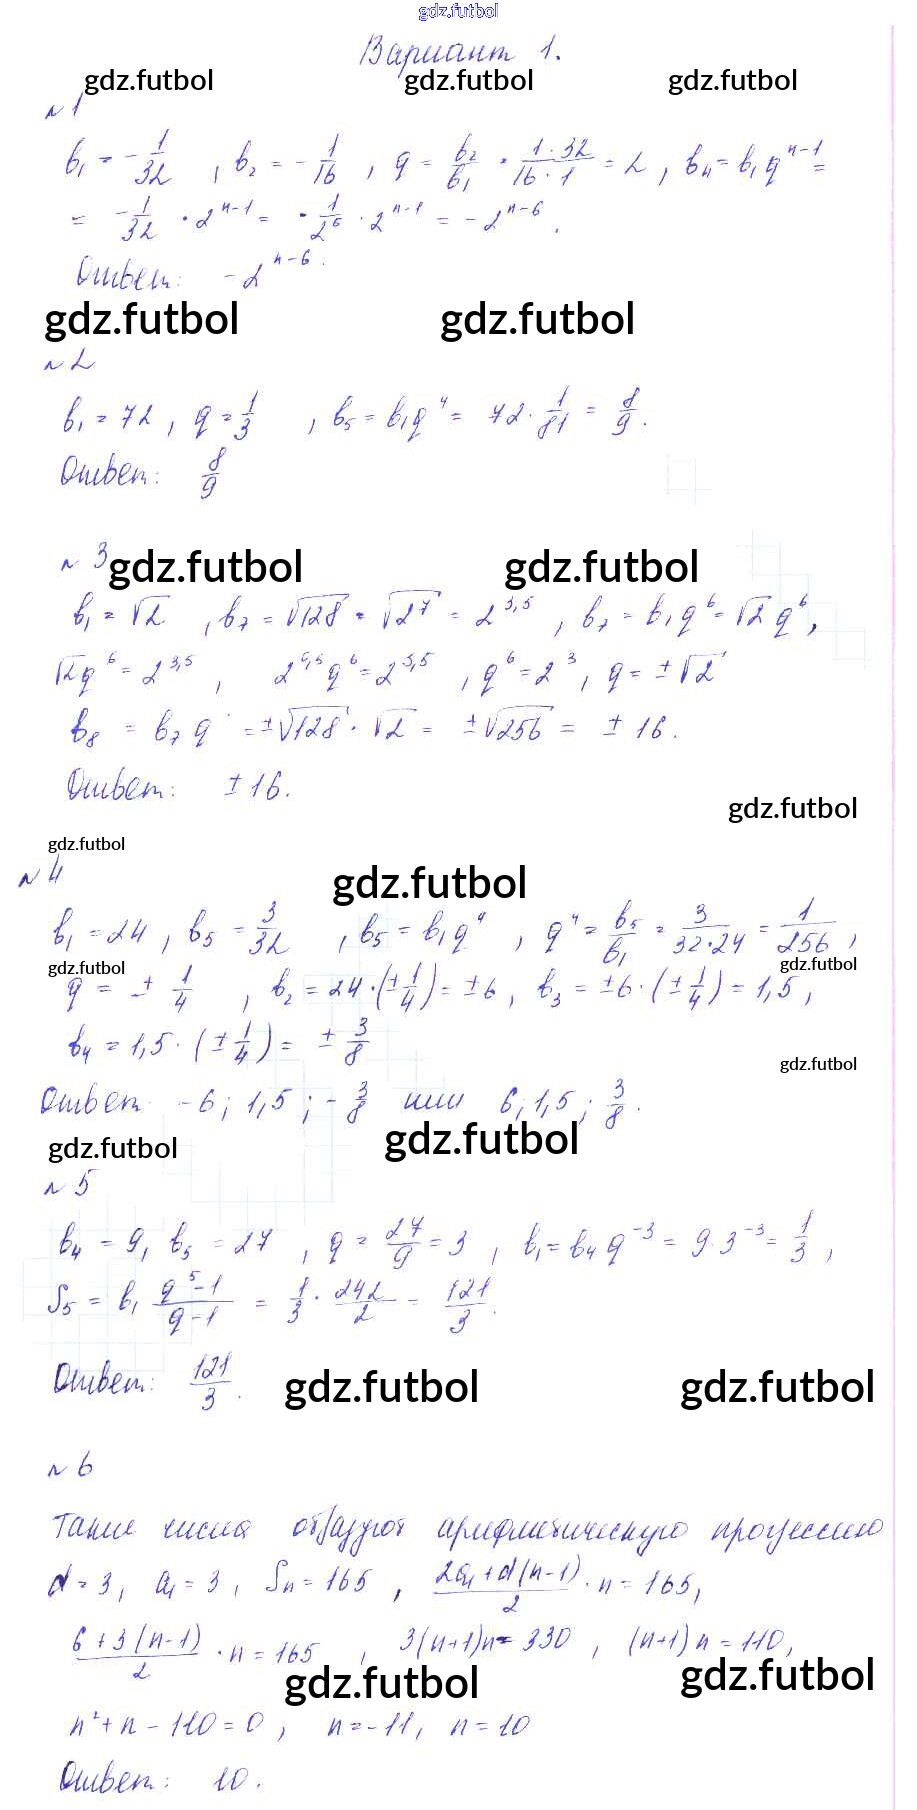 gdz.futbol
Вариант 1.
gdz.futbol gdz.futbol gdz.futbol
№1
b₁ = -1/32, b₂ = -1/16, q = b₂/b₁ = (1·32)/(16·1) = 2, bₙ = b₁qⁿ⁻¹ =
= -1/32 · 2ⁿ⁻¹ = -1/2⁶ · 2ⁿ⁻¹ = -2ⁿ⁻⁶.
Ответ: -2ⁿ⁻⁶.
gdz.futbol gdz.futbol
№2
b₁ = 72, q = 1/3, b₅ = b₁q⁴ = 72 · 1/81 = 8/9.
Ответ: 8/9
№3 gdz.futbol gdz.futbol
b₁ = √2, b₇ = √128 = √2⁷ = 2^3,5, b₇ = b₁q⁶ = √2 q⁶,
√2q⁶ = 2^3,5, 2^0,5 q⁶ = 2^3,5, q⁶ = 2³, q = ±√2
b₈ = b₇q = ±√128 · √2 = ±√256 = ±16.
Ответ: ±16.
gdz.futbol
gdz.futbol
№4 gdz.futbol
b₁ = 24, b₅ = 3/32, b₅ = b₁q⁴, q⁴ = b₅/b₁ = 3/(32·24) = 1/256,
gdz.futbol gdz.futbol
q = ± 1/4, b₂ = 24·(±1/4) = ±6, b₃ = ±6·(±1/4) = 1,5,
b₄ = 1,5·(±1/4) = ± 3/8
gdz.futbol
Ответ: -6; 1,5; -3/8 или 6; 1,5; 3/8.
gdz.futbol gdz.futbol
№5
b₄ = 9, b₅ = 27, q = 27/9 = 3, b₁ = b₄q⁻³ = 9·3⁻³ = 1/3,
S₅ = b₁ (q⁵-1)/(q-1) = 1/3 · 242/2 = 121/3.
Ответ: 121/3. gdz.futbol gdz.futbol
№6
Такие числа образуют арифметическую прогрессию
d = 3, a₁ = 3, Sₙ = 165, (2a₁+d(n-1))/2 · n = 165,
(6+3(n-1))/2 · n = 165, 3(n+1)n = 330, (n+1)n = 110,
gdz.futbol gdz.futbol
n² + n - 110 = 0, n = -11, n = 10
Ответ: 10.